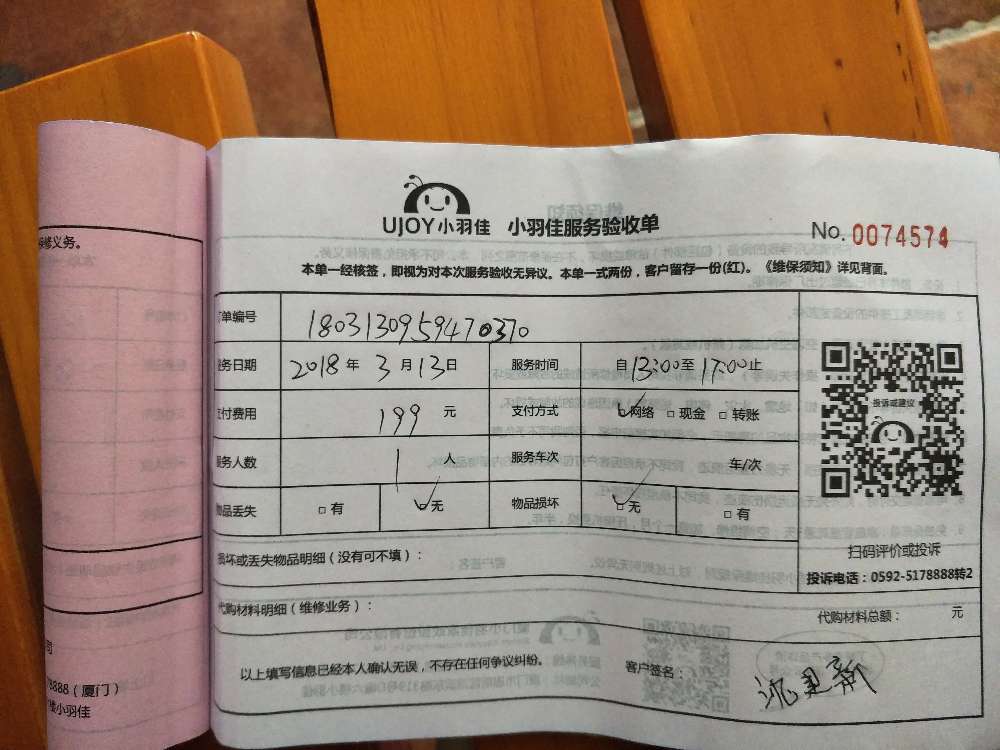 UJOY小羽佳 小羽佳服务验收单
No. 0074574
本单一经核签，即视为对本次服务验收无异议。本单一式两份，客户留存一份(红)。《维保须知》详见背面。
单编号 1803130959470370
务日期 2018 年 3 月 13 日 服务时间 自 13:00 至 17:00 止
付费用 199 元 支付方式 ☑网络 □现金 □转账
务人数 1 人 服务车次 年/次
品丢失 □有 ☑无 物品损坏 ☑无 □有
投诉或建议
扫码评价或投诉
投诉电话：0592-5178888转2
损坏或丢失物品明细（没有可不填）：
代购材料明细（维修业务）：
代购材料总额： 元
以上填写信息已经本人确认无误，不存在任何争议纠纷。
客户签名：
修义务。
司
78888（厦门）
楼小羽佳